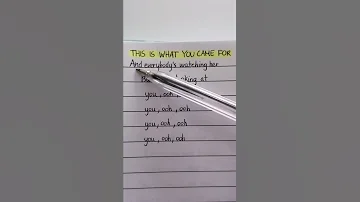 THIS IS WHAT YOU CAME FOR
And everybody's watching her
at
you, ooh,
you, ooh, ooh
you, ooh, ooh
you, ooh, ooh